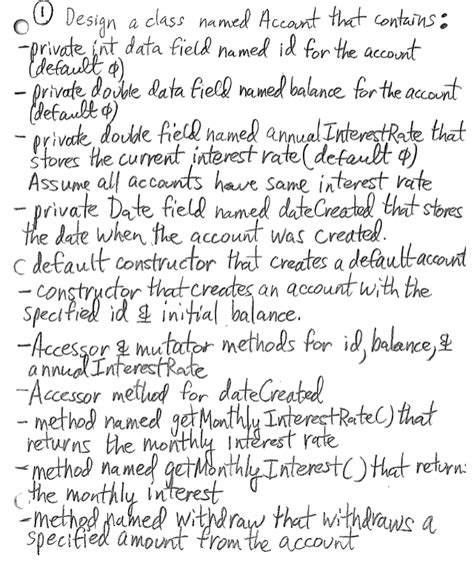 ① Design a class named Account that contains:
-private int data field named id for the account
(default φ)
- private double data field named balance for the account
(default φ)
- private double field named annualInterestRate that
stores the current interest rate (default φ)
Assume all accounts have same interest rate
- private Date field named dateCreated that stores
the date when the account was created.
default constructor that creates a default account
- constructor that creates an account with the
specified id & initial balance.
-Accessor & mutator methods for id, balance, &
annualInterestRate
-Accessor method for dateCreated
- method named getMonthlyInterestRate() that
returns the monthly interest rate
-method named getMonthlyInterest() that return
the monthly interest
-method named withdraw that withdraws a
specified amount from the account